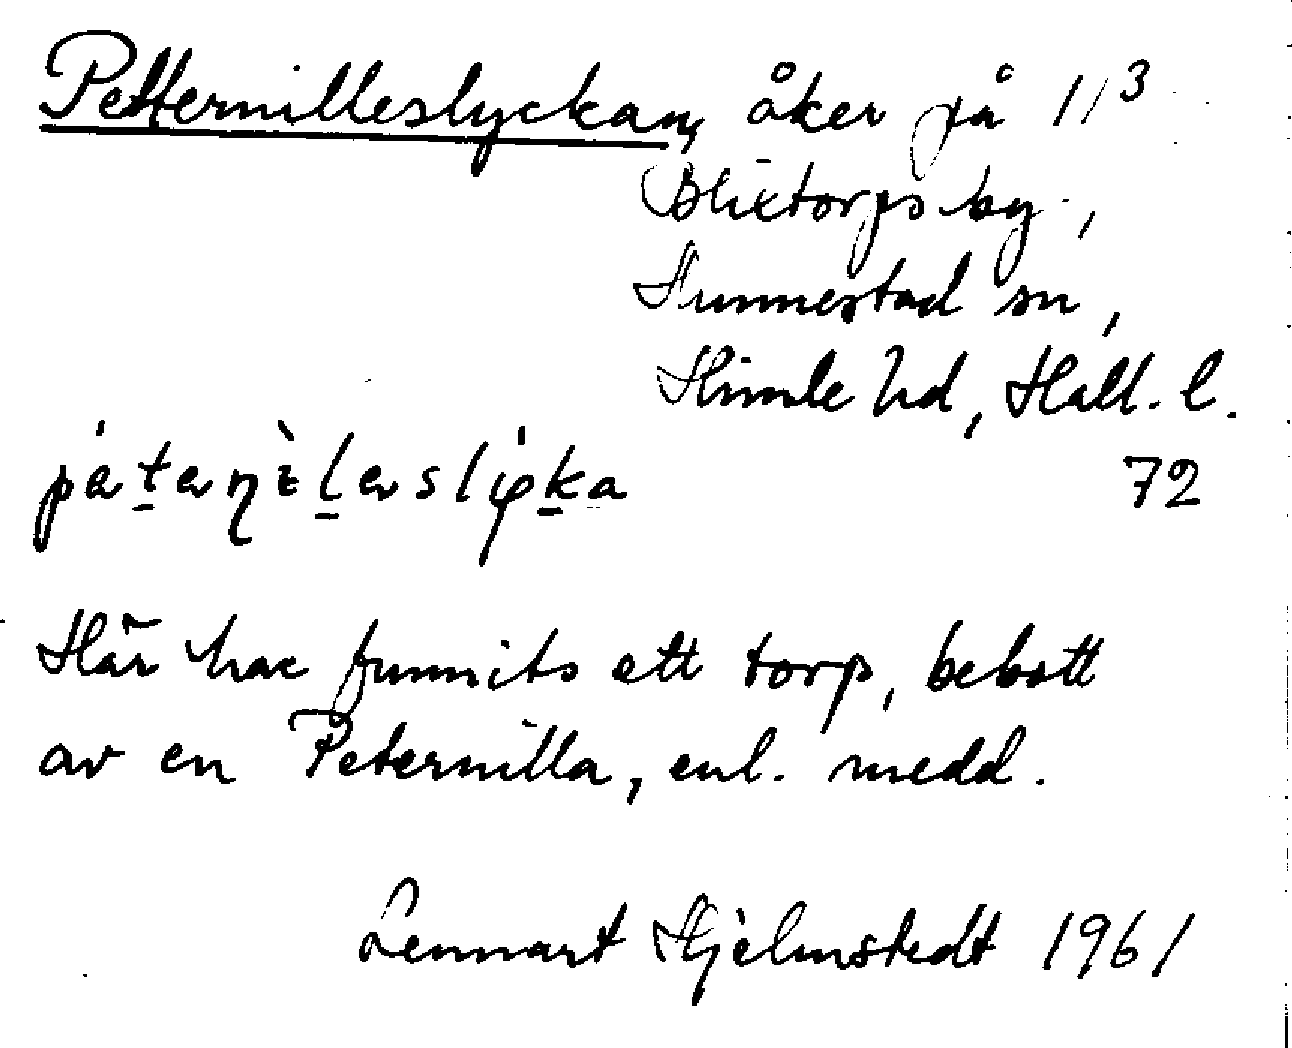 Petternilleslyckan, åker på 1/3
Blixtorps by,
Hunnestad sn,
Himle hd, Hall. l.
72
Här har funnits ett torp, bebott
av en Peternilla, enl. medd.
Lennart Hjelmstedt 1961